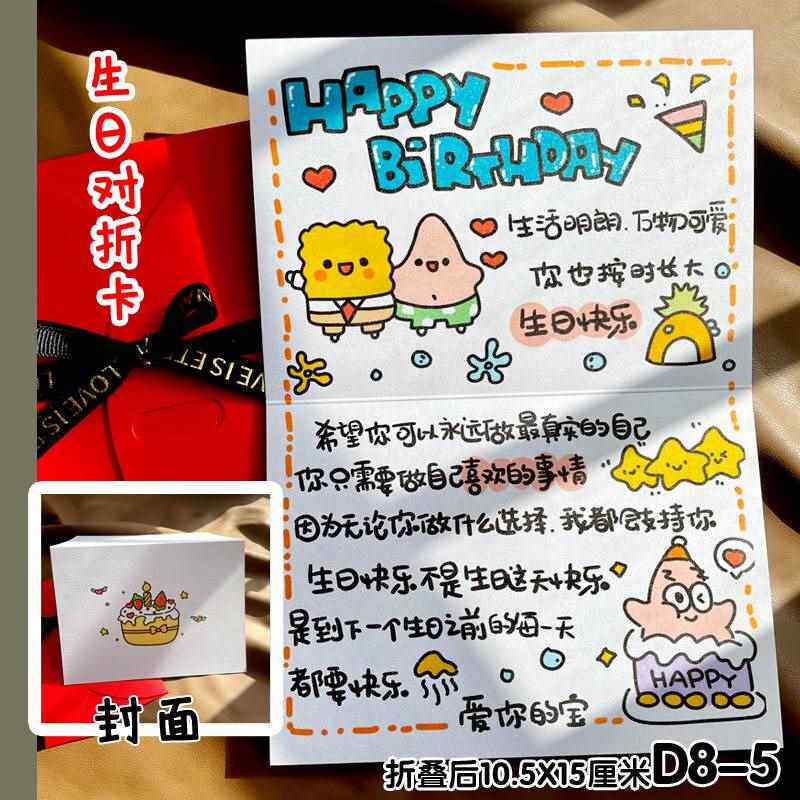 生日对折卡
HAPPY
BIRTHDAY
生活明朗.万物可爱
你也按时长大
生日快乐
希望你可以永远做最真实的自己
你只需要做自己喜欢的事情
因为无论你做什么选择.我都会支持你
生日快乐不是生日这天快乐
是到下一个生日之前的每一天
都要快乐
爱你的宝
HAPPY
LOVE IS ET
封面
折叠后10.5X15厘米D8-5